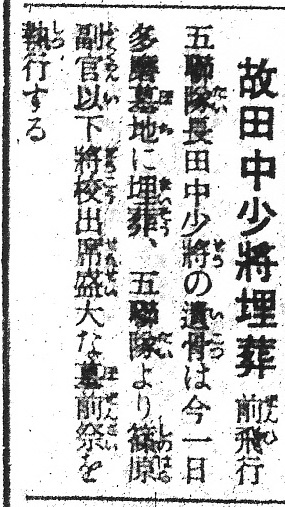 故田中少將埋葬 前飛行
五聯隊長田中少將の遺骨は今一日
多磨墓地に埋葬、五聯隊より篠原
副官以下將校出席盛大な墓前祭を
執行する